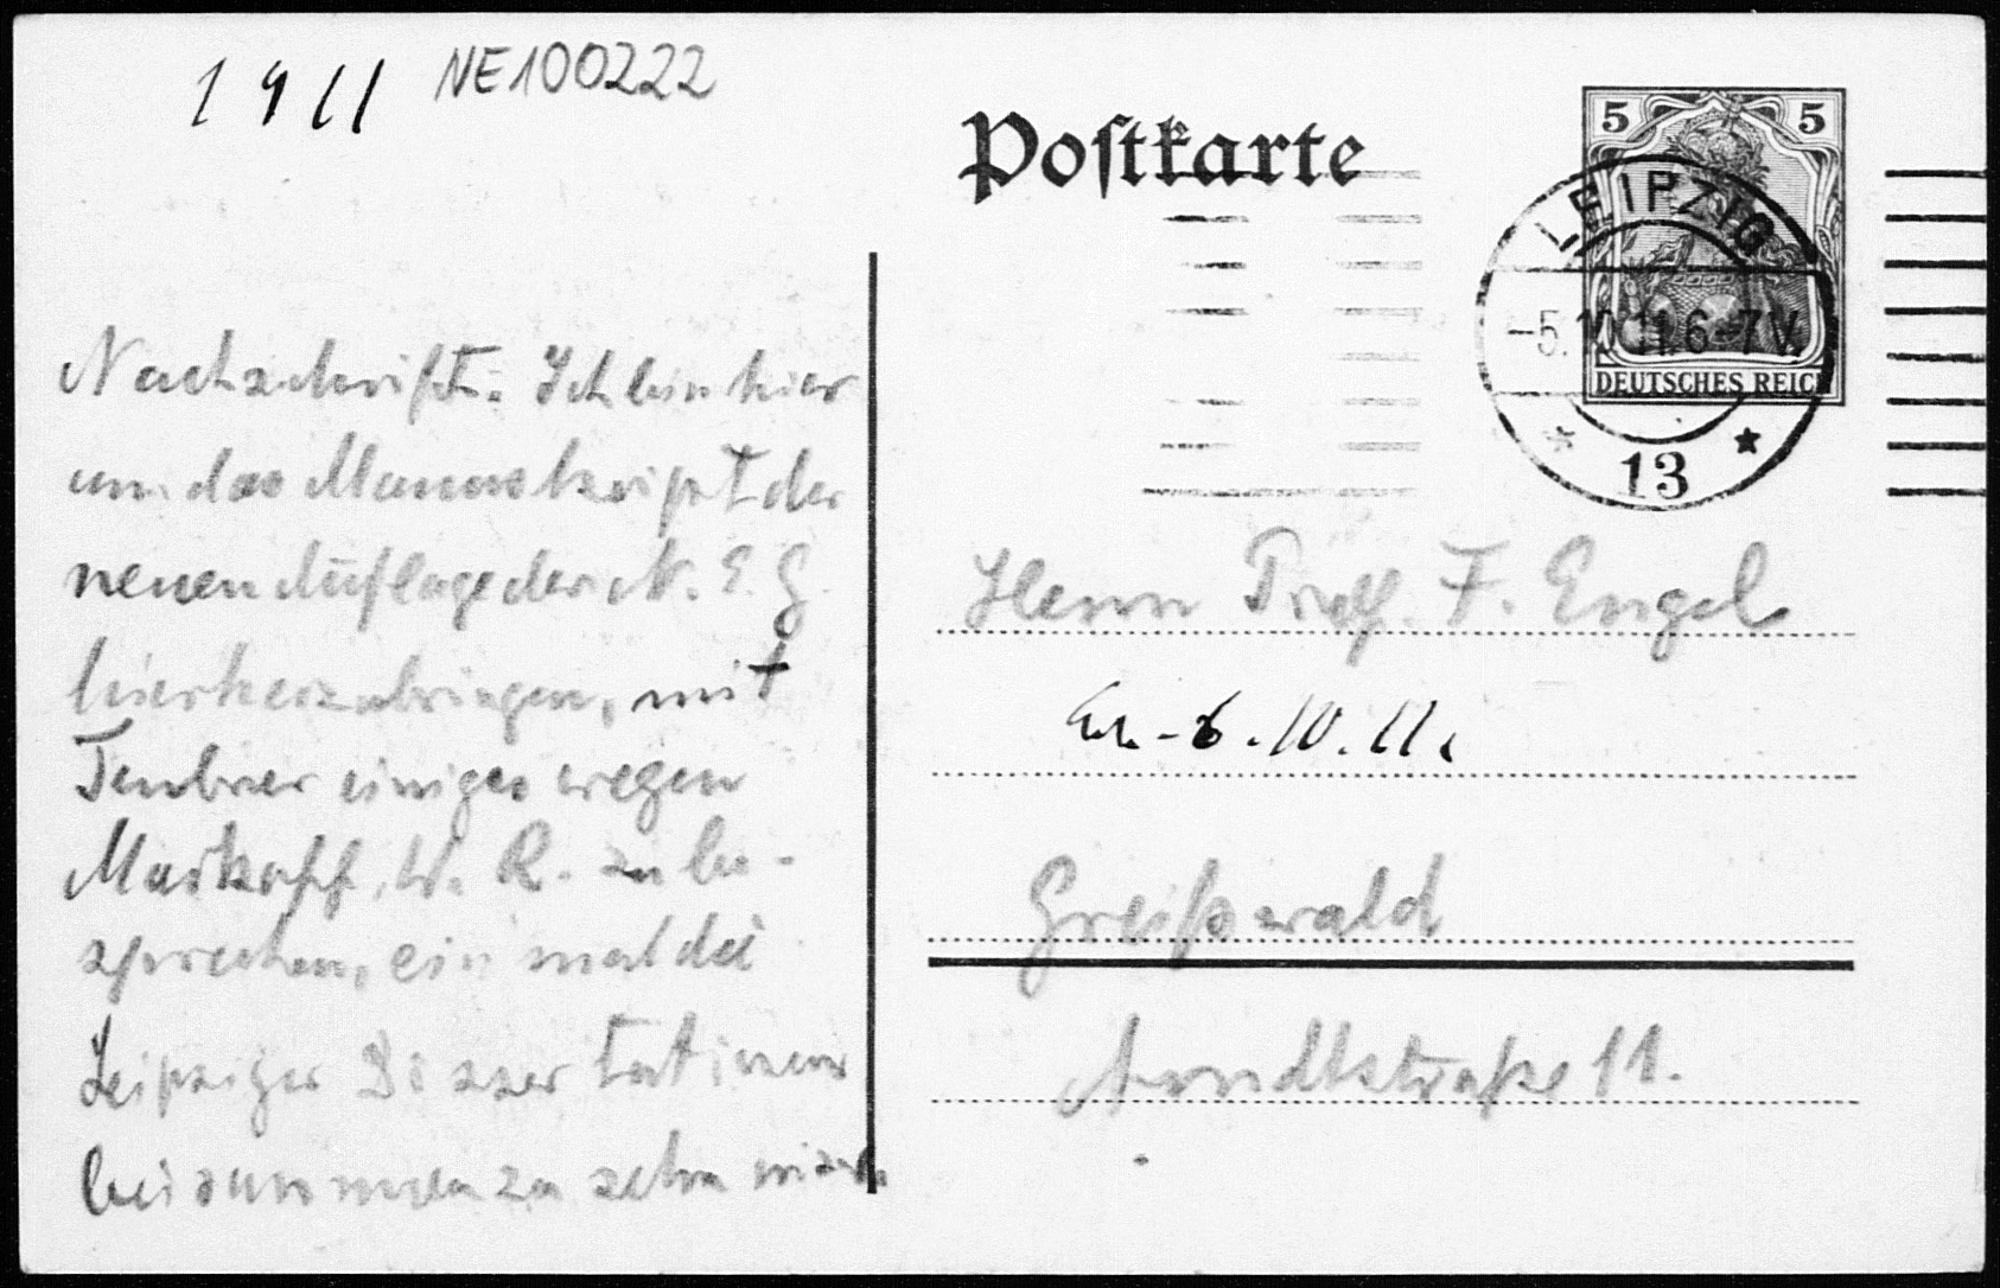 1911 NE100222
Postkarte
5 5
LEIPZIG
-5.10.11.6-7V.
DEUTSCHES REICH
* 13 *
Nachschrift: Ich bin hier
um das Manuskript der
neuen Auflage der N. E. G.
hierherzubringen, mit
Teubner einiges wegen
W. R. zu be-
sprechen, ein mal die
Leipziger Dissertationen
beisammen zu sehn
Herrn Prof. F. Engel
6.10.11.
Greifswald
Arndtstraße 11.